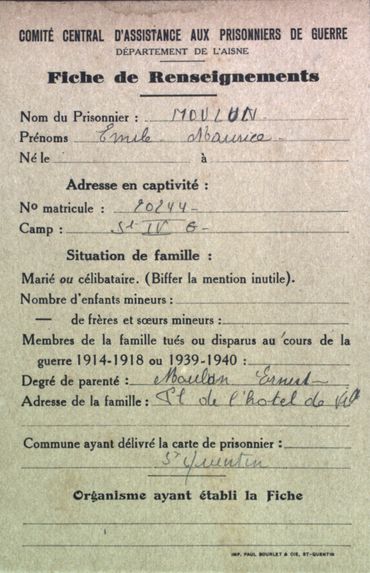 COMITÉ CENTRAL D'ASSISTANCE AUX PRISONNIERS DE GUERRE
DÉPARTEMENT DE L'AISNE
Fiche de Renseignements
Nom du Prisonnier : MOULUN
Prénoms Emile Maurice
Né le à
Adresse en captivité :
No matricule : 20244
Camp : St IV G
Situation de famille :
Marié ou célibataire. (Biffer la mention inutile).
Nombre d'enfants mineurs :
— de frères et sœurs mineurs :
Membres de la famille tués ou disparus au cours de la
guerre 1914-1918 ou 1939-1940 :
Degré de parenté : Ernest
Adresse de la famille : Pl de l'hotel de Vil
Commune ayant délivré la carte de prisonnier :
St Quentin
Organisme ayant établi la Fiche
IMP. PAUL BOURLET & CIE, ST-QUENTIN